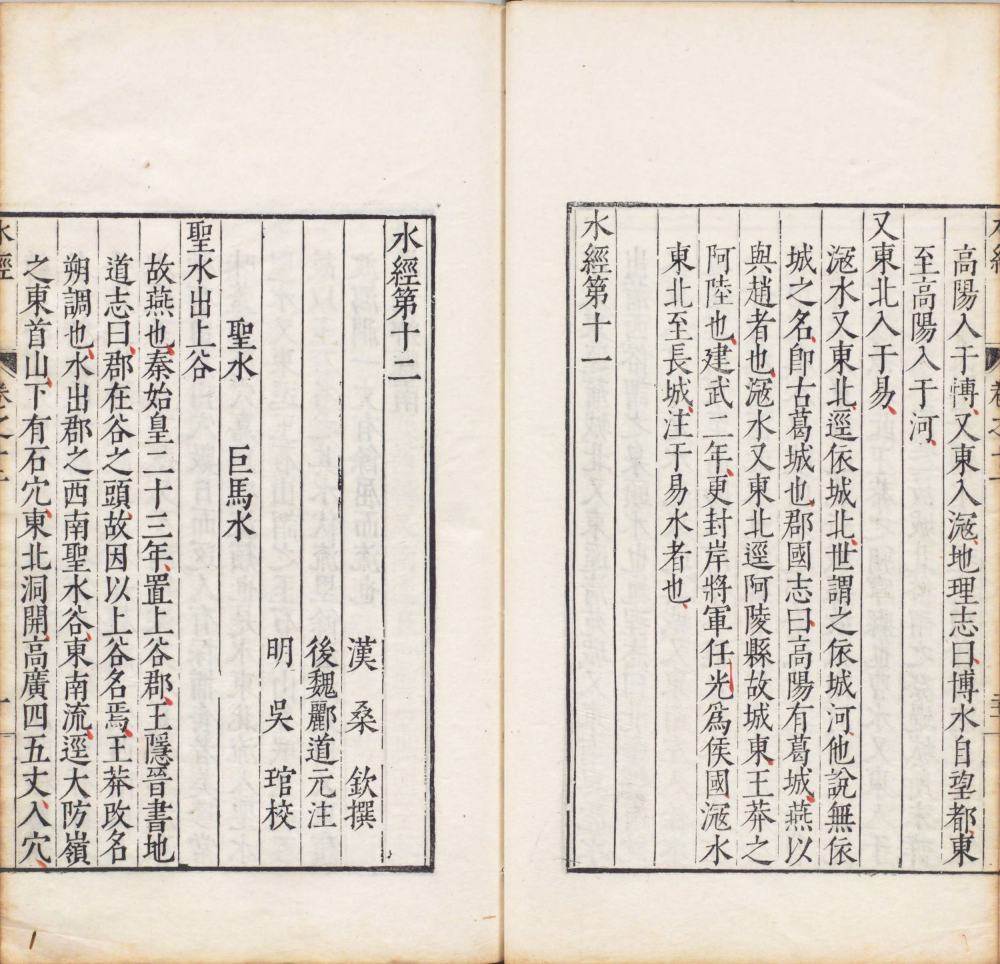 高陽入于慱又東入㴲地理志曰博水自望都東
至高陽入于河
又東北入于易
㴲水又東北逕依城北世謂之依城河他說無依
城之名卽古葛城也郡國志曰高陽有葛城燕以
與趙者也㴲水又東北逕阿陵縣故城東王莽之
阿陸也建武二年更封岸將軍任光爲侯國㴲水
東北至長城注于易水者也
水經第十一
水經第十二
漢桑欽撰
後魏酈道元注
明吳琯校
聖水 巨馬水
聖水出上谷
故燕也秦始皇二十三年置上谷郡王隱晉書地
道志曰郡在谷之頭故因以上谷名焉王莽改名
朔調也水出郡之西南聖水谷東南流逕大防嶺
之東首山下有石穴東北洞開高廣四五丈入穴
水經 卷之十二 一